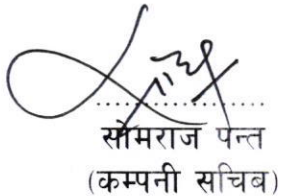 सोमराज पन्त
(कम्पनी सचिब)